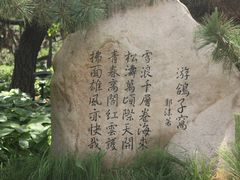 游鴿子窩
郭沫若
雪浪千層卷海來
松濤萬頃際天開
青春高閣紅雲護
拂面雄風亦快哉